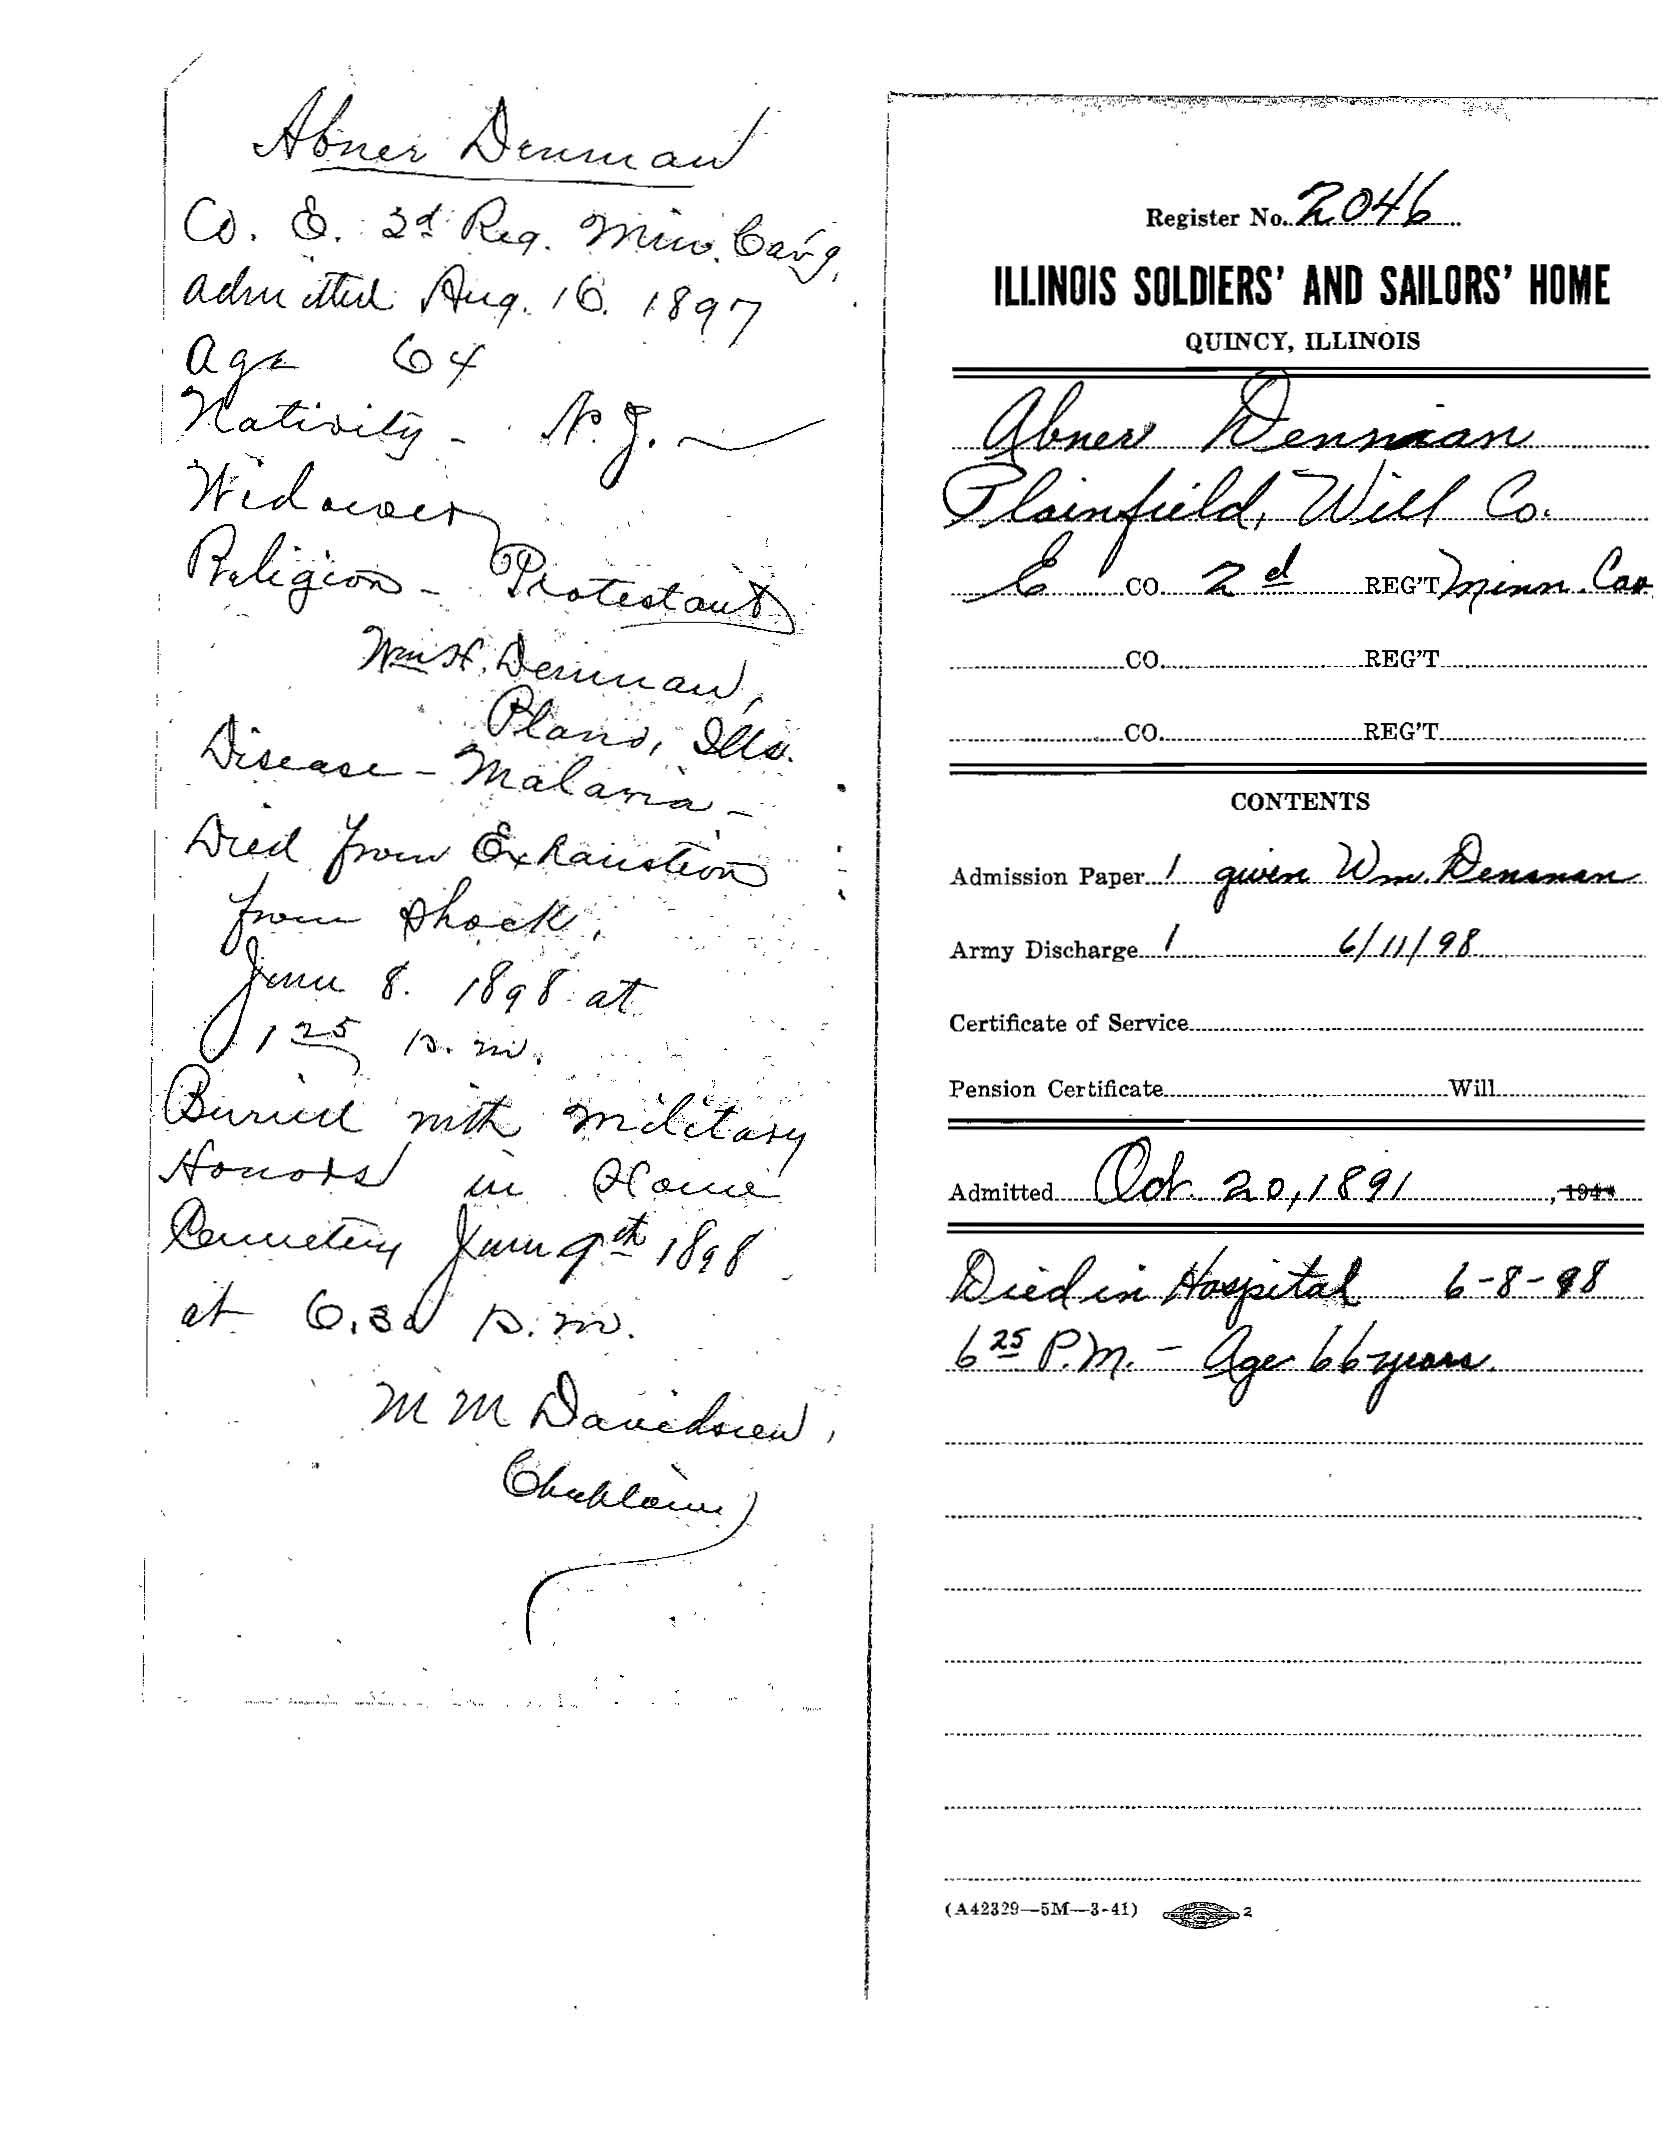 Abner Denman
Co. E. 2d Reg. Min. Cav'y,
Admitted Aug. 16. 1897
Age 64
Nativity - N.J.
Widower
Religion - Protestant
Wm H. Denman,
Plano, Ills.
Disease - Malaria -
Died from Exhaustion
from Shock.
June 8. 1898 at
1 25 p.m.
Buried with Military
Honors in Home
Cemetery June 9th 1898
at 6.30 p.m.
M M Davidson,
Chaplain
Register No. 2046
ILLINOIS SOLDIERS' AND SAILORS' HOME
QUINCY, ILLINOIS
Abner Denman
Plainfield, Will Co.
E CO. 2d REG'T Minn. Cav
CO. REG'T
CO. REG'T
CONTENTS
Admission Paper 1 given Wm. Denman
Army Discharge 1 6/11/98
Certificate of Service
Pension Certificate Will
Admitted Oct. 20, 1891, 194
Died in Hospital 6-8-98
6 25 P.M. - Age 66 years
(A42329—5M—3-41) 2